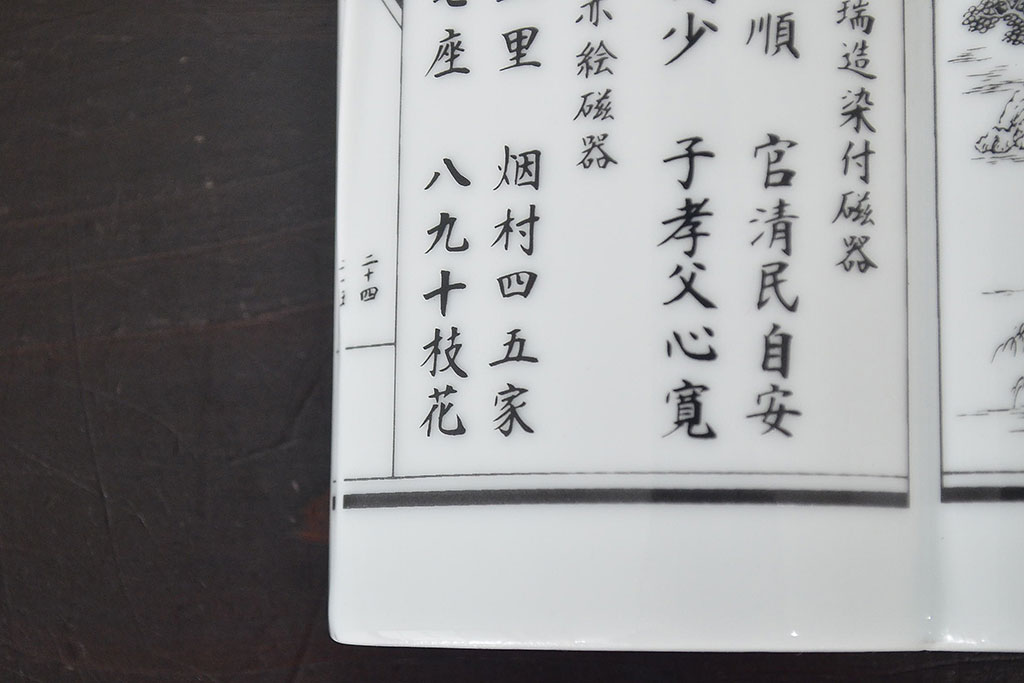 瑞造染付磁器
順 官清民自安
少 子孝父心寛
赤絵磁器
里 烟村四五家
座 八九十枝花
二十四